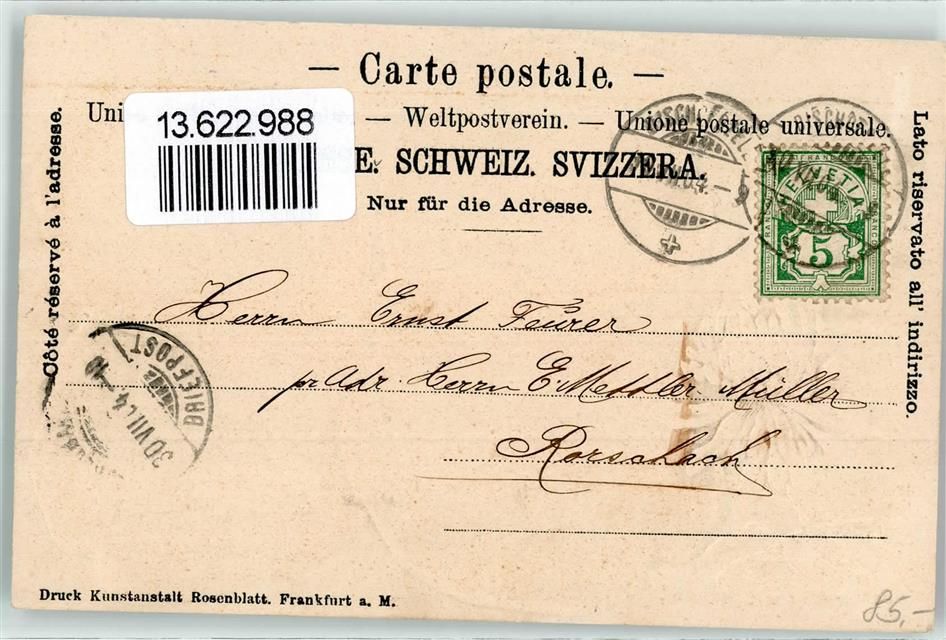 — Carte postale. —
Uni
13.622.988
— Weltpostverein. — Unione postale universale.
E. SCHWEIZ. SVIZZERA.
Nur für die Adresse.
Côté réservé à l'adresse.
Lato riservato all' indirizzo.
FRANCO
HELVETIA
5
Herrn Ernst Feurer
pr Adr. Herrn E. Mettler-Müller
Rorschach
BRIEFPOST
30 VII 04 – 10
Druck Kunstanstalt Rosenblatt. Frankfurt a. M.
85.-